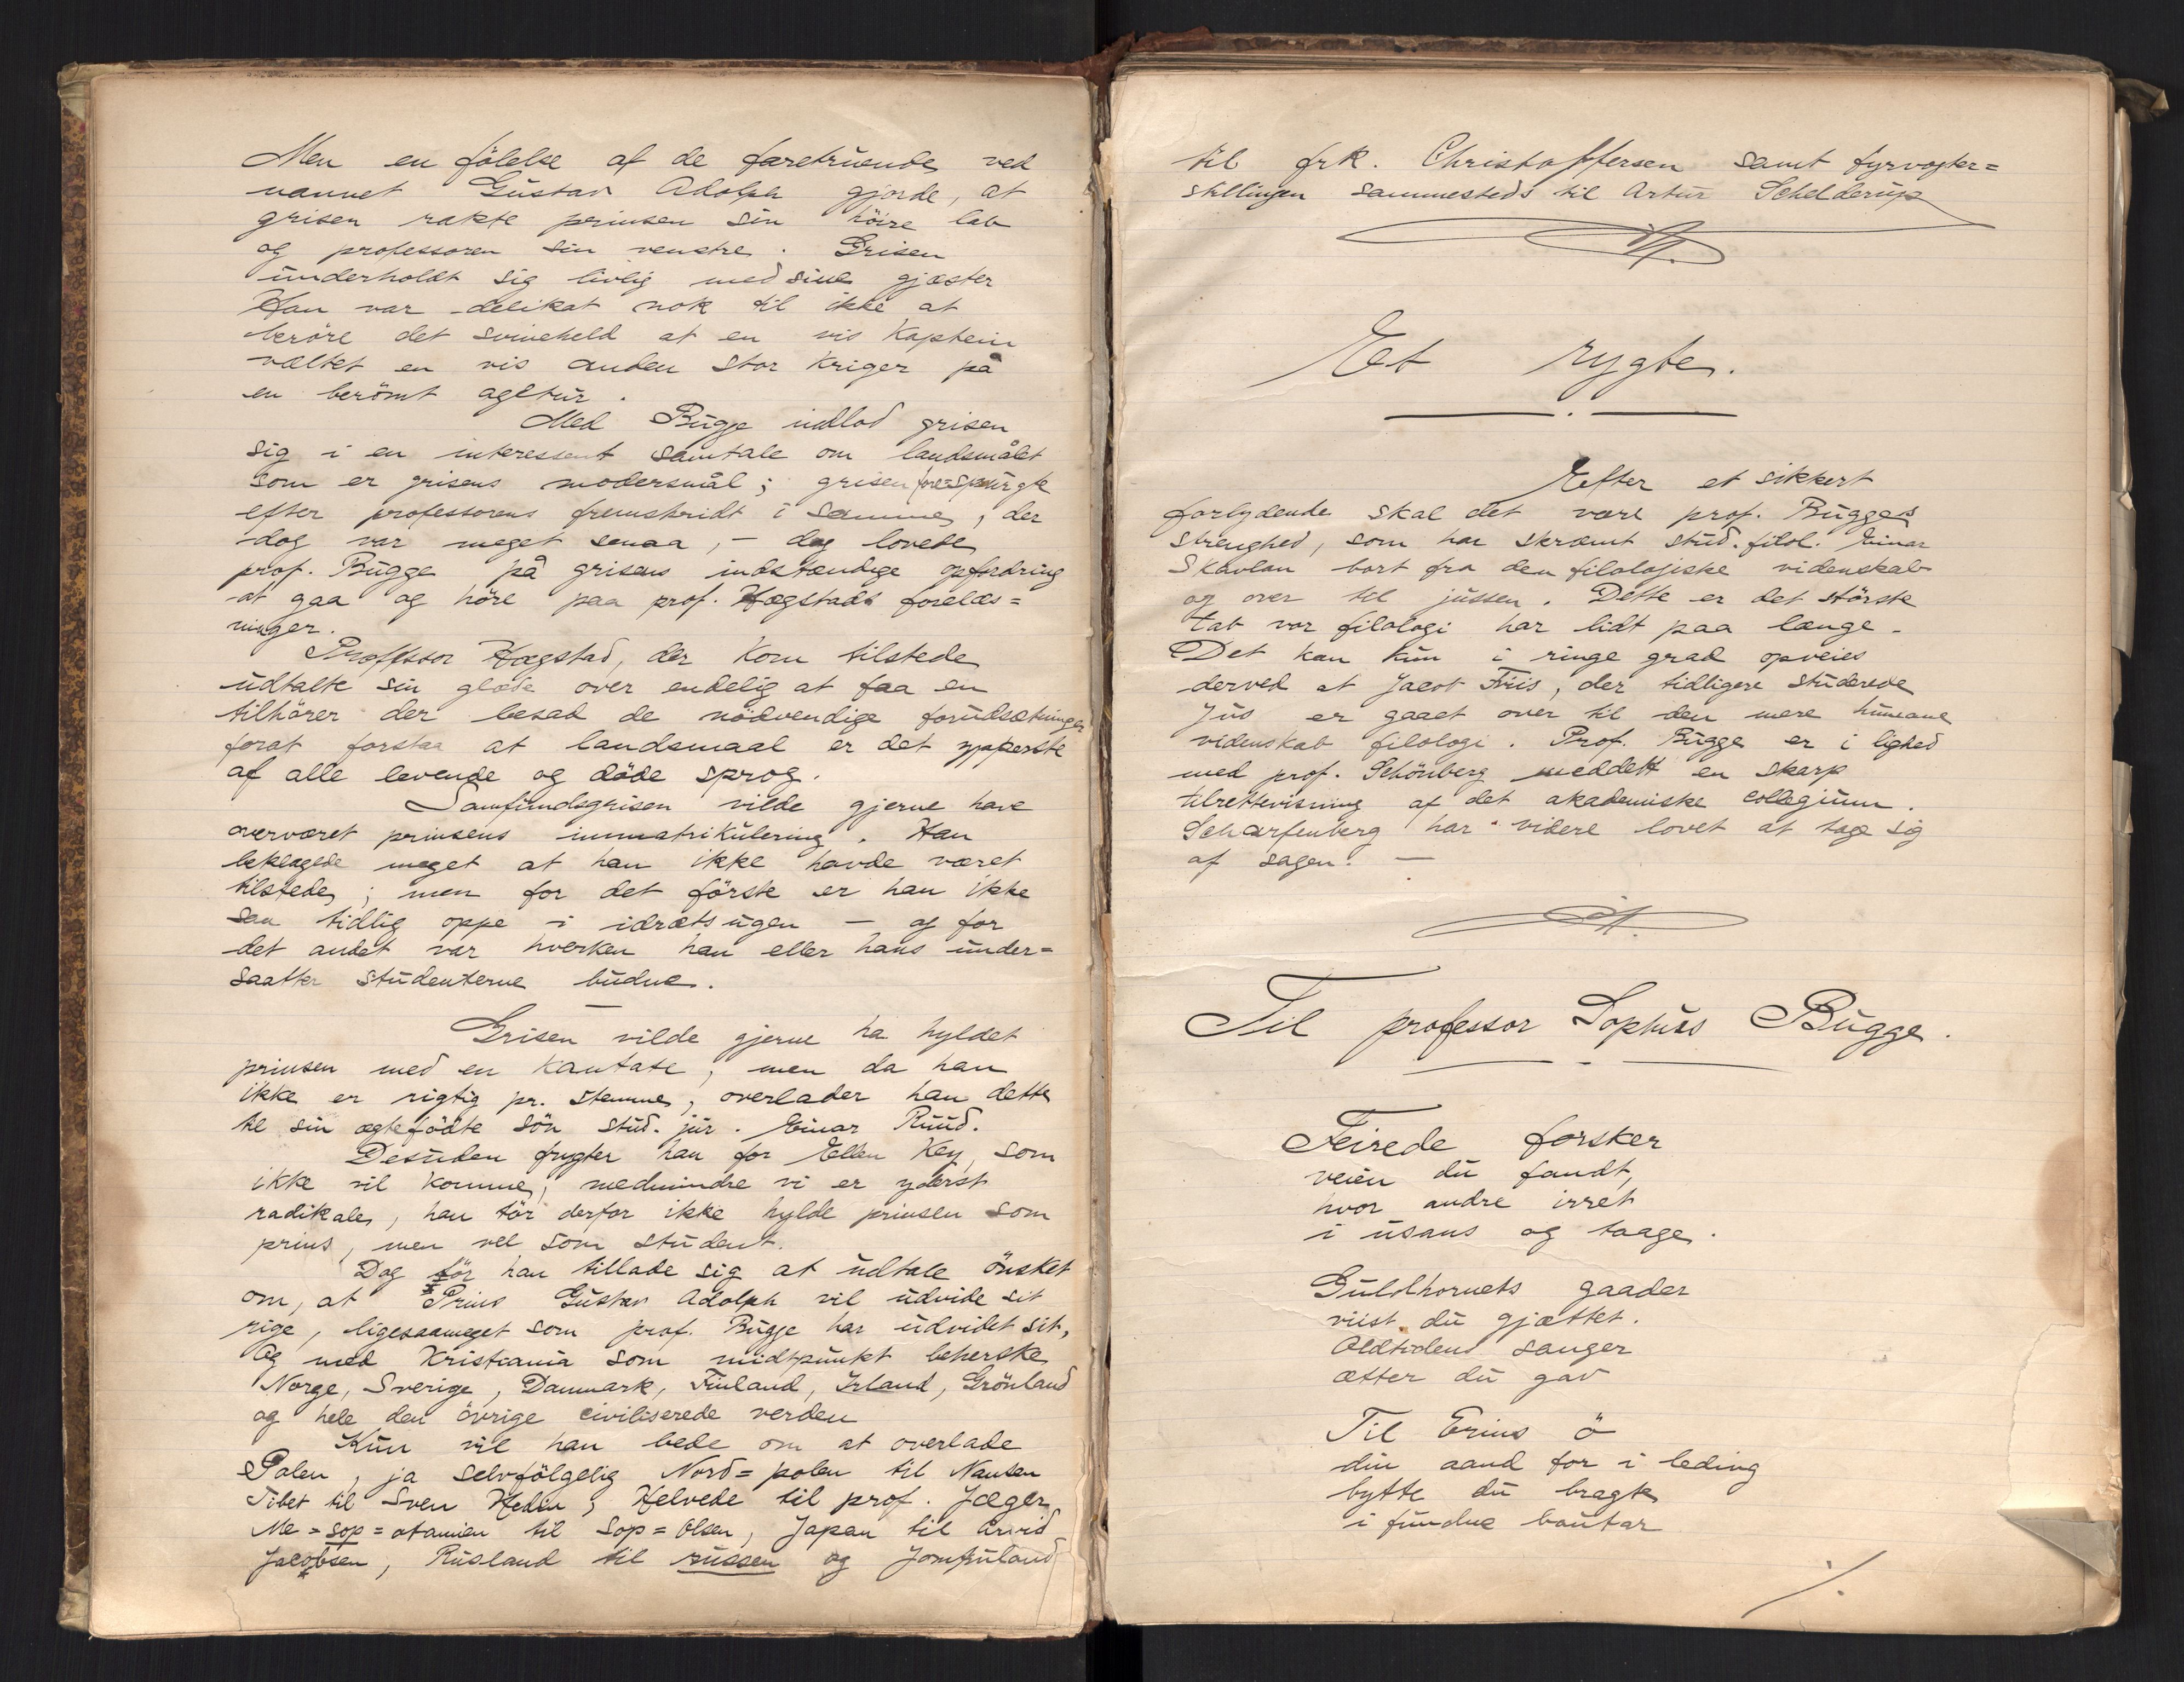 Men en fölelse af de faretruende ved
navnet Gustav Adolph gjorde, at
grisen rakte prinsen sin höire lab
og professoren sin venstre. Grisen
underholdt sig livlig med sine gjæster
Han var delikat nok til ikke at
beröre det svineheld at en vis Kaptein
væltet en vis anden stor Kriger på
en berömt agetur.
Med Bugge indlod grisen
sig i en interessant samtale om landsmålet
som er grisens modersmål; grisen forespurgte
efter professorens fremskridt i samme, der
dog var meget smaa, – dog lovede
prof. Bugge på grisens indstændige opfordring
at gaa og höre paa prof. Hægstads forelæs=
ninger.
Professor Hægstad, der kom tilstede
udtalte sin glæde over endelig at faa en
tilhörer der besad de nödvendige forudsætninger
forat forstaa at landsmaal er det ypperste
af alle levende og döde sprog.
Samfundsgrisen vilde gjerne have
overværet prinsens immatrikulering. Han
beklagede meget at han ikke havde været
tilstede; men for det förste er han ikke
saa tidlig oppe i idrætsugen – og for
det andet var hverken han eller hans under=
saatter studenterne budne.
Grisen vilde gjerne ha hyldet
prinsen med en Kantate, men da han
ikke er rigtig pr. stemme, overlader han dette
til sin ægtefödte sön stud. jur. Einar Ruud.
Desuden frygter han for Ellen Key, som
ikke vil komme, medmindre vi er yderst
radikale, han tör derfor ikke hylde prinsen som
prins, men vel som student.
Dog tör han tillade sig at udtale önsket
om, at Prins Gustav Adolph vil udvide sit
rige, ligesaameget som prof. Bugge har udvidet sit,
Og med Kristiania som midtpunkt beherske
Norge, Sverige, Danmark, Finland, Irland, Grönland
og hele den övrige civiliserede verden
Kun vil han bede om at overlade
Polen, ja selvfölgelig Nord=polen til Nansen
Tibet til Sven Hedin, Helvede til prof. Jæger,
Me=sop=otamien til Sop=Olsen, Japan til Arvid
Jacobsen, Rusland til russen og Jomfruland
til frk. Christoffersen samt fyrvogter=
stillingen sammesteds til Artur Schelderup
Et rygte.
Efter et sikkert
forlydende skal det være prof. Bugges
strenghed, som har skræmt stud. filol. Einar
Skavlan bort fra den filologiske videnskab
og over til jussen. Dette er det störste
tab vor filologi har lidt paa længe.
Det kan kun i ringe grad opveies
derved at Jacob Friis, der tidligere studerede
Jus er gaaet over til den mere humane
videnskab filologi. Prof. Bugge er i lighed
med prof. Schönberg meddelt en skarp
tilrettevisning af det akademiske collegium.
Scharfenberg har videre lovet at tage sig
af sagen. –
Til professor Sophus Bugge.
Feirede forsker
veien du fandt,
hvor andre irret
i usans og taage.
Guldhornets gaader
viist du gjættet.
Oldtidens sanger
ætter du gav
Til Erins ö
din aand for i leding
bytte du bragte
i fundne bautar
./.